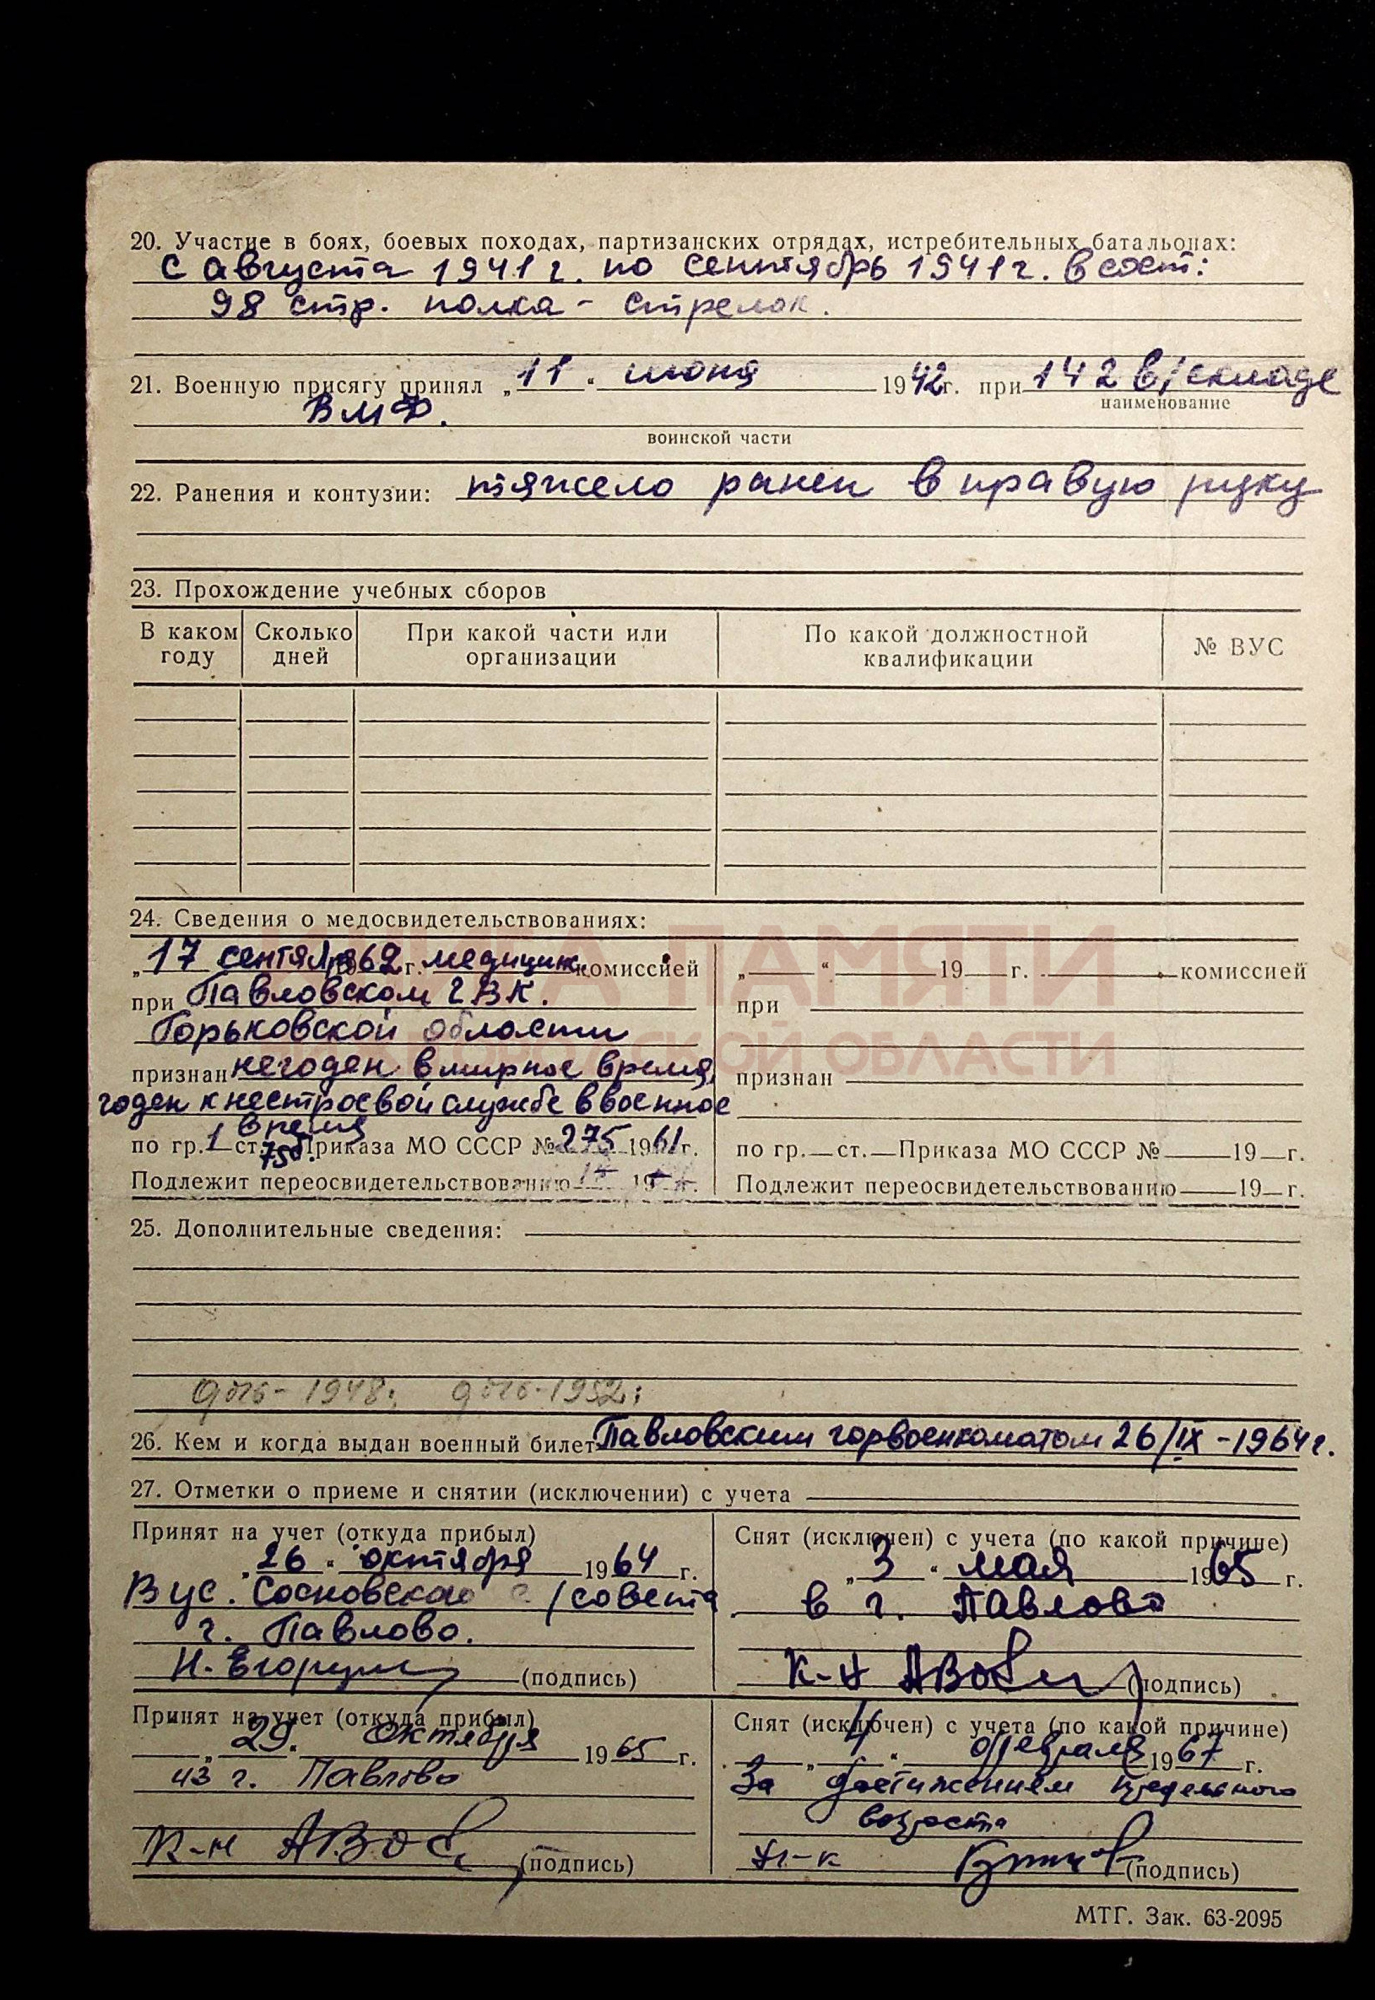 20. Участие в боях, боевых походах, партизанских отрядах, истребительных батальонах:
с августа 1941 г. по сентябрь 1941 г. в сост:
98 стр. полка - стрелок.
21. Военную присягу принял „11“ июня 1942 г. при 142 в/складе
наименование
ВМФ.
воинской части
22. Ранения и контузии: тяжело ранен в правую руку
23. Прохождение учебных сборов
В каком году
Сколько дней
При какой части или организации
По какой должностной квалификации
№ ВУС
24. Сведения о медосвидетельствованиях:
„17 сентября 1962 г. медицин. комиссией
при Павловском ГВК.
Горьковской области
признан негоден в мирное время,
годен к нестроевой службе в военное
время
по гр. 1 ст. 75б. Приказа МО СССР № 275 1961 г.
Подлежит переосвидетельствованию 19 г.
„ “ 19 г. комиссией
при
признан
по гр. ст. Приказа МО СССР № 19 г.
Подлежит переосвидетельствованию 19 г.
КНИГА ПАМЯТИ
НИЖЕГОРОДСКОЙ ОБЛАСТИ
25. Дополнительные сведения:
дочь - 1948; дочь - 1952;
26. Кем и когда выдан военный билет Павловским горвоенкоматом 26/IX - 1964 г.
27. Отметки о приеме и снятии (исключении) с учета
Принят на учет (откуда прибыл)
„26“ октября 1964 г.
В ус. Сосновского с/совета
г. Павлово.
(подпись)
Снят (исключен) с учета (по какой причине)
„3“ мая 1965 г.
в г. Павлово
к-н (подпись)
Принят на учет (откуда прибыл)
„29“ октября 1965 г.
из г. Павлово
к-н (подпись)
Снят (исключен) с учета (по какой причине)
„4“ февраля 1967 г.
За достижением предельного
возраста
(подпись)
МТГ. Зак. 63-2095